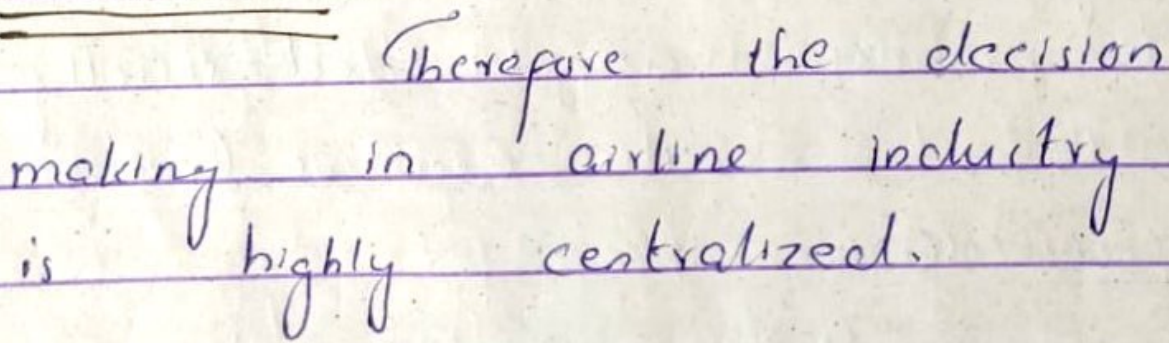 Therefore the decision
making in airline industry
is highly centralized.